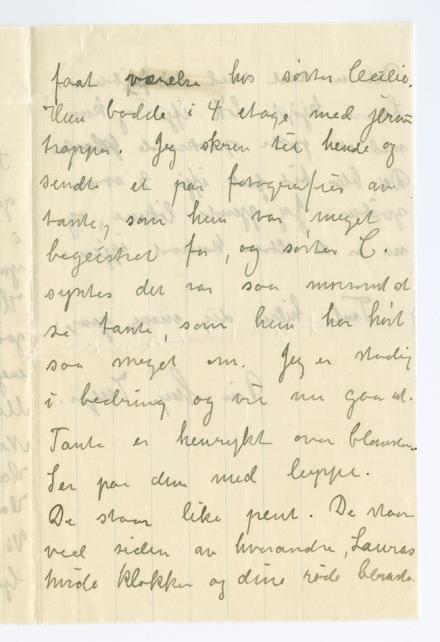 faat værelse hos søster Cecilie.
Hun bodde i 4 etage med jern
trapper. Jeg skrev til hende og
sendte et par fotografier av
tante, som hun var meget
begeistret for, og søster C.
syntes det var saa morsomt at
se tante, som hun har hørt
saa meget om. Jeg er stadig
i bedring og vil nu gaa ut.
Tante er henrykt over
Ser paa dem med luppe.
De staar like pent. De staar
ved siden av hverandre, Lauras
hvide klokker og dine røde